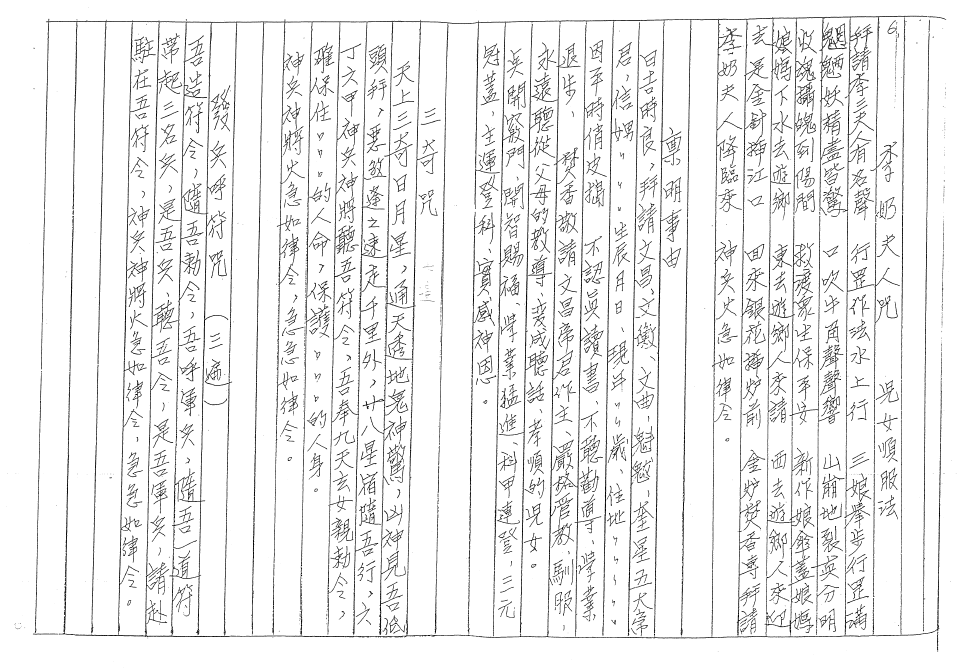 6 李奶夫人咒 兒女順服法
拜請李三夫人有名聲 行罡作法水上行 三娘舉步行罡滿
魍魎妖精盡皆驚 口吹牛角聲聲響 山崩地裂英分明
收魂攝魄到陽間 救渡眾生保平安 新作娘傘蓋娘媽
娘媽下水去遊鄉 東去遊鄉人來請 西去遊鄉人來迎
去是金針插江口 回來銀花插炉前 金炉焚香專拜請
李奶夫人降臨來 神兵火急如律令。
稟明事由
日吉時良,拜請文昌、文衡、文曲、魁魁、奎星五大帝
君,信媽〃〃生辰月日、現年〃歲、住地〃〃〃〃
因平時俏皮搗 不認真讀書、不聽勸導、學業
退步, 焚香敬請文昌帝君作主、嚴格管教、馴服,
永遠聽從父母的教導,変成聽話、孝順的兒女。
英開竅門,開智賜福、學業猛進 科甲連登,三元
冠蓋,主運登科,實感神恩。
三奇咒 一遍
天上三奇日月星,通天透地鬼神驚,凶神見吾低
頭拜,惡煞逢之速走千里外,廿八星宿隨吾行,六
丁六甲神兵神將聽吾符令,吾奉九天玄女親勅令,
確保住〃〃的人命,保護〃〃〃的人身。
神兵神將火急如律令,急急如律令。
發兵呼符咒 (三遍)
吾造符令,隨吾勅令,吾呼軍兵,隨吾一道符
帶起三名兵,是吾兵,聽吾令,是吾軍兵,請赴
駐在吾符令,神兵神將火急如律令,急急如律令。